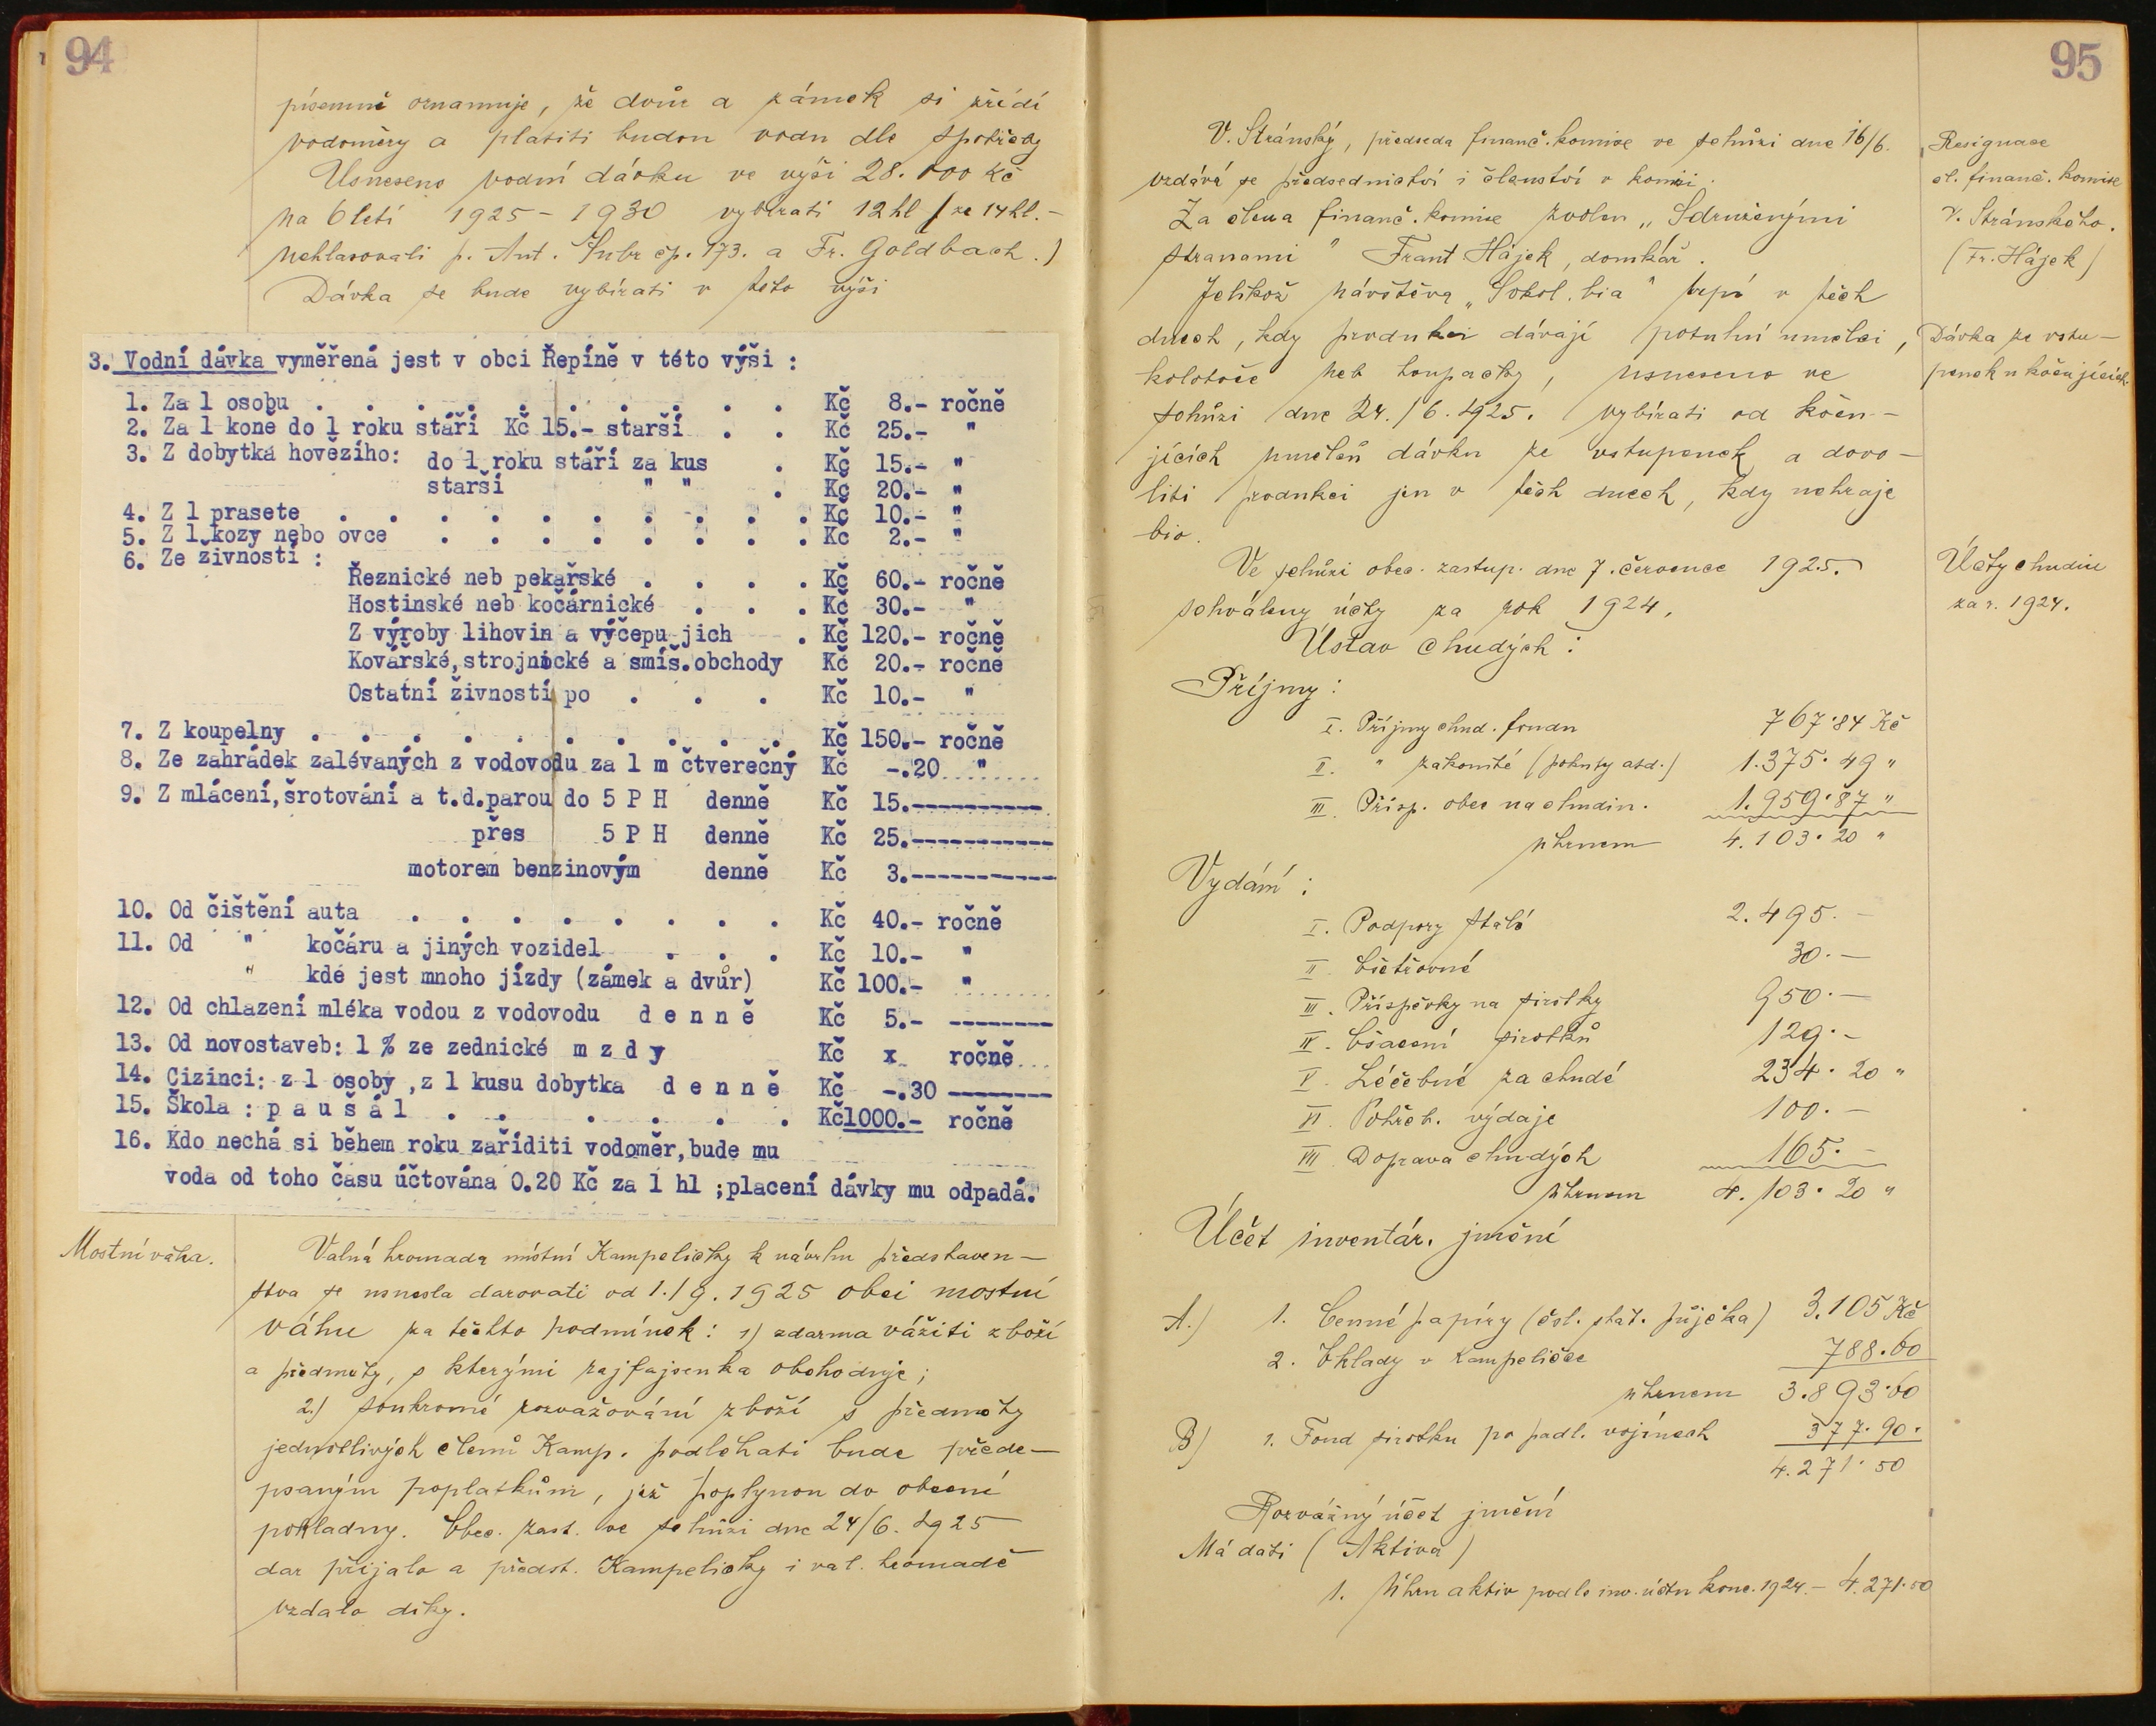 94
písemně oznamuje, že dvůr a zámek si zřídí
vodoměry a platiti budou vodu dle spotřeby
Usneseno vodní dávku ve výši 28.000 Kč
na 6letí 1925 - 1930 vybírati 12 hl (ze 14 hl. -
nehlasovali p. Ant. Šubr čp. 173. a Fr. Goldbach.)
Dávka se bude vybírati v této výši
3. Vodní dávka vyměřená jest v obci Řepíně v této výši :
1. Za 1 osobu . . . . . . . . . . Kč 8.- ročně
2. Za 1 koně do 1 roku stáří Kč 15.- starší . . Kč 25.- "
3. Z dobytka hovězího: do 1 roku stáří za kus . Kč 15.- "
starší " " . Kč 20.- "
4. Z 1 prasete . . . . . . . . . . Kč 10.- "
5. Z 1 kozy nebo ovce . . . . . . . . Kč 2.- "
6. Ze živností :
Řeznické neb pekařské . . . . Kč 60.- ročně
Hostinské neb kočárnické . . . Kč 30.- "
Z výroby lihovin a výčepu jich . Kč 120.- ročně
Kovářské, strojnické a smíš. obchody Kč 20.- ročně
Ostatní živnosti po . . . Kč 10.- "
7. Z koupelny . . . . . . . . . . Kč 150.- ročně
8. Ze zahrádek zalévaných z vodovodu za 1 m čtverečný Kč -.20 "
9. Z mlácení, šrotování a t.d. parou do 5 P H denně Kč 15.----------
přes 5 P H denně Kč 25.-----------
motorem benzinovým denně Kč 3.-----------
10. Od čištění auta . . . . . . . . Kč 40.- ročně
11. Od " kočáru a jiných vozidel . . . Kč 10.- "
" kde jest mnoho jízdy (zámek a dvůr) Kč 100.- "
12. Od chlazení mléka vodou z vodovodu d e n n ě Kč 5.- --------
13. Od novostaveb: 1 % ze zednické m z d y Kč x ročně
14. Cizinci: z 1 osoby , z 1 kusu dobytka d e n n ě Kč -.30 --------
15. Škola : p a u š á l . . . . . . Kč1000.- ročně
16. Kdo nechá si během roku zaříditi vodoměr, bude mu
voda od toho času účtována 0.20 Kč za 1 hl ; placení dávky mu odpadá.
Mostní váha.
Valná hromada místní Kampeličky k návrhu představen-
stva se usnesla darovati od 1./9. 1925 obci mostní
váhu za těchto podmínek: 1) zdarma vážiti zboží
a předměty, s kterými rajfajsenka obchoduje;
2.) soukromé rozvažování zboží s předměty
jednotlivých členů Kamp. podléhati bude přede-
psaným poplatkům, jež poplynou do obecní
pokladny. Obec. zast. ve schůzi dne 24/6. 1925
dar přijalo a předst. Kampeličky i val. hromadě
vzdalo díky.
95
V. Stránský, předseda finanč. komise ve schůzi dne 16/6.
vzdává se předsednictví i členství v komisi.
Za člena finanč. komise zvolen „Sdruženými
stranami" Frant. Hájek, domkář.
Resignace
čl. finanč. komise
V. Stránského.
(Fr. Hájek)
Jelikož návštěva „Sokol. bia" trpí v těch
dnech, kdy produkci dávají potulní umělci,
kolotoče neb houpačky, usneseno ve
schůzi dne 24./6. 1925. vybírati od koču-
jících umělců dávku ze vstupenek a dovo-
liti produkci jen v těch dnech, kdy nehraje
bio.
Dávka ze vstu-
penek u kočujících.
Ve schůzi obec. zastup. dne 7. července 1925.
schváleny účty za rok 1924.
Účty chudin
za r. 1924.
Ústav chudých :
Příjmy :
I. Příjmy chud. fondu 767·84 Kč
II. " zákonité (pokuty atd.) 1.375·49 "
III. Přísp. obce na chudin. 1.959·87 "
úhrnem 4.103·20 "
Vydání :
I. Podpory stálé 2.495.-
II. Ošetřovné 30.-
III. Příspěvky na sirotky 950.-
IV. Ošacení sirotků 129.-
V. Léčebné za chudé 234·20 "
VI. Pohřeb. výdaje 100.-
VII. Doprava chudých 165.-
úhrnem 4.103·20 "
Účet inventár. jmění
A.) 1. Cenné papíry (čsl. stát. půjčka) 3.105 Kč
2. Vklady v Kampeličce 788·60
úhrnem 3.893·60
B) 1. Fond sirotků po padl. vojínech 377·90.
4.271·50
Rozvážný účet jmění
Má dáti (Aktiva)
1. Úhrn aktiv podle inv. účtu konc. 1924. - 4.271·50